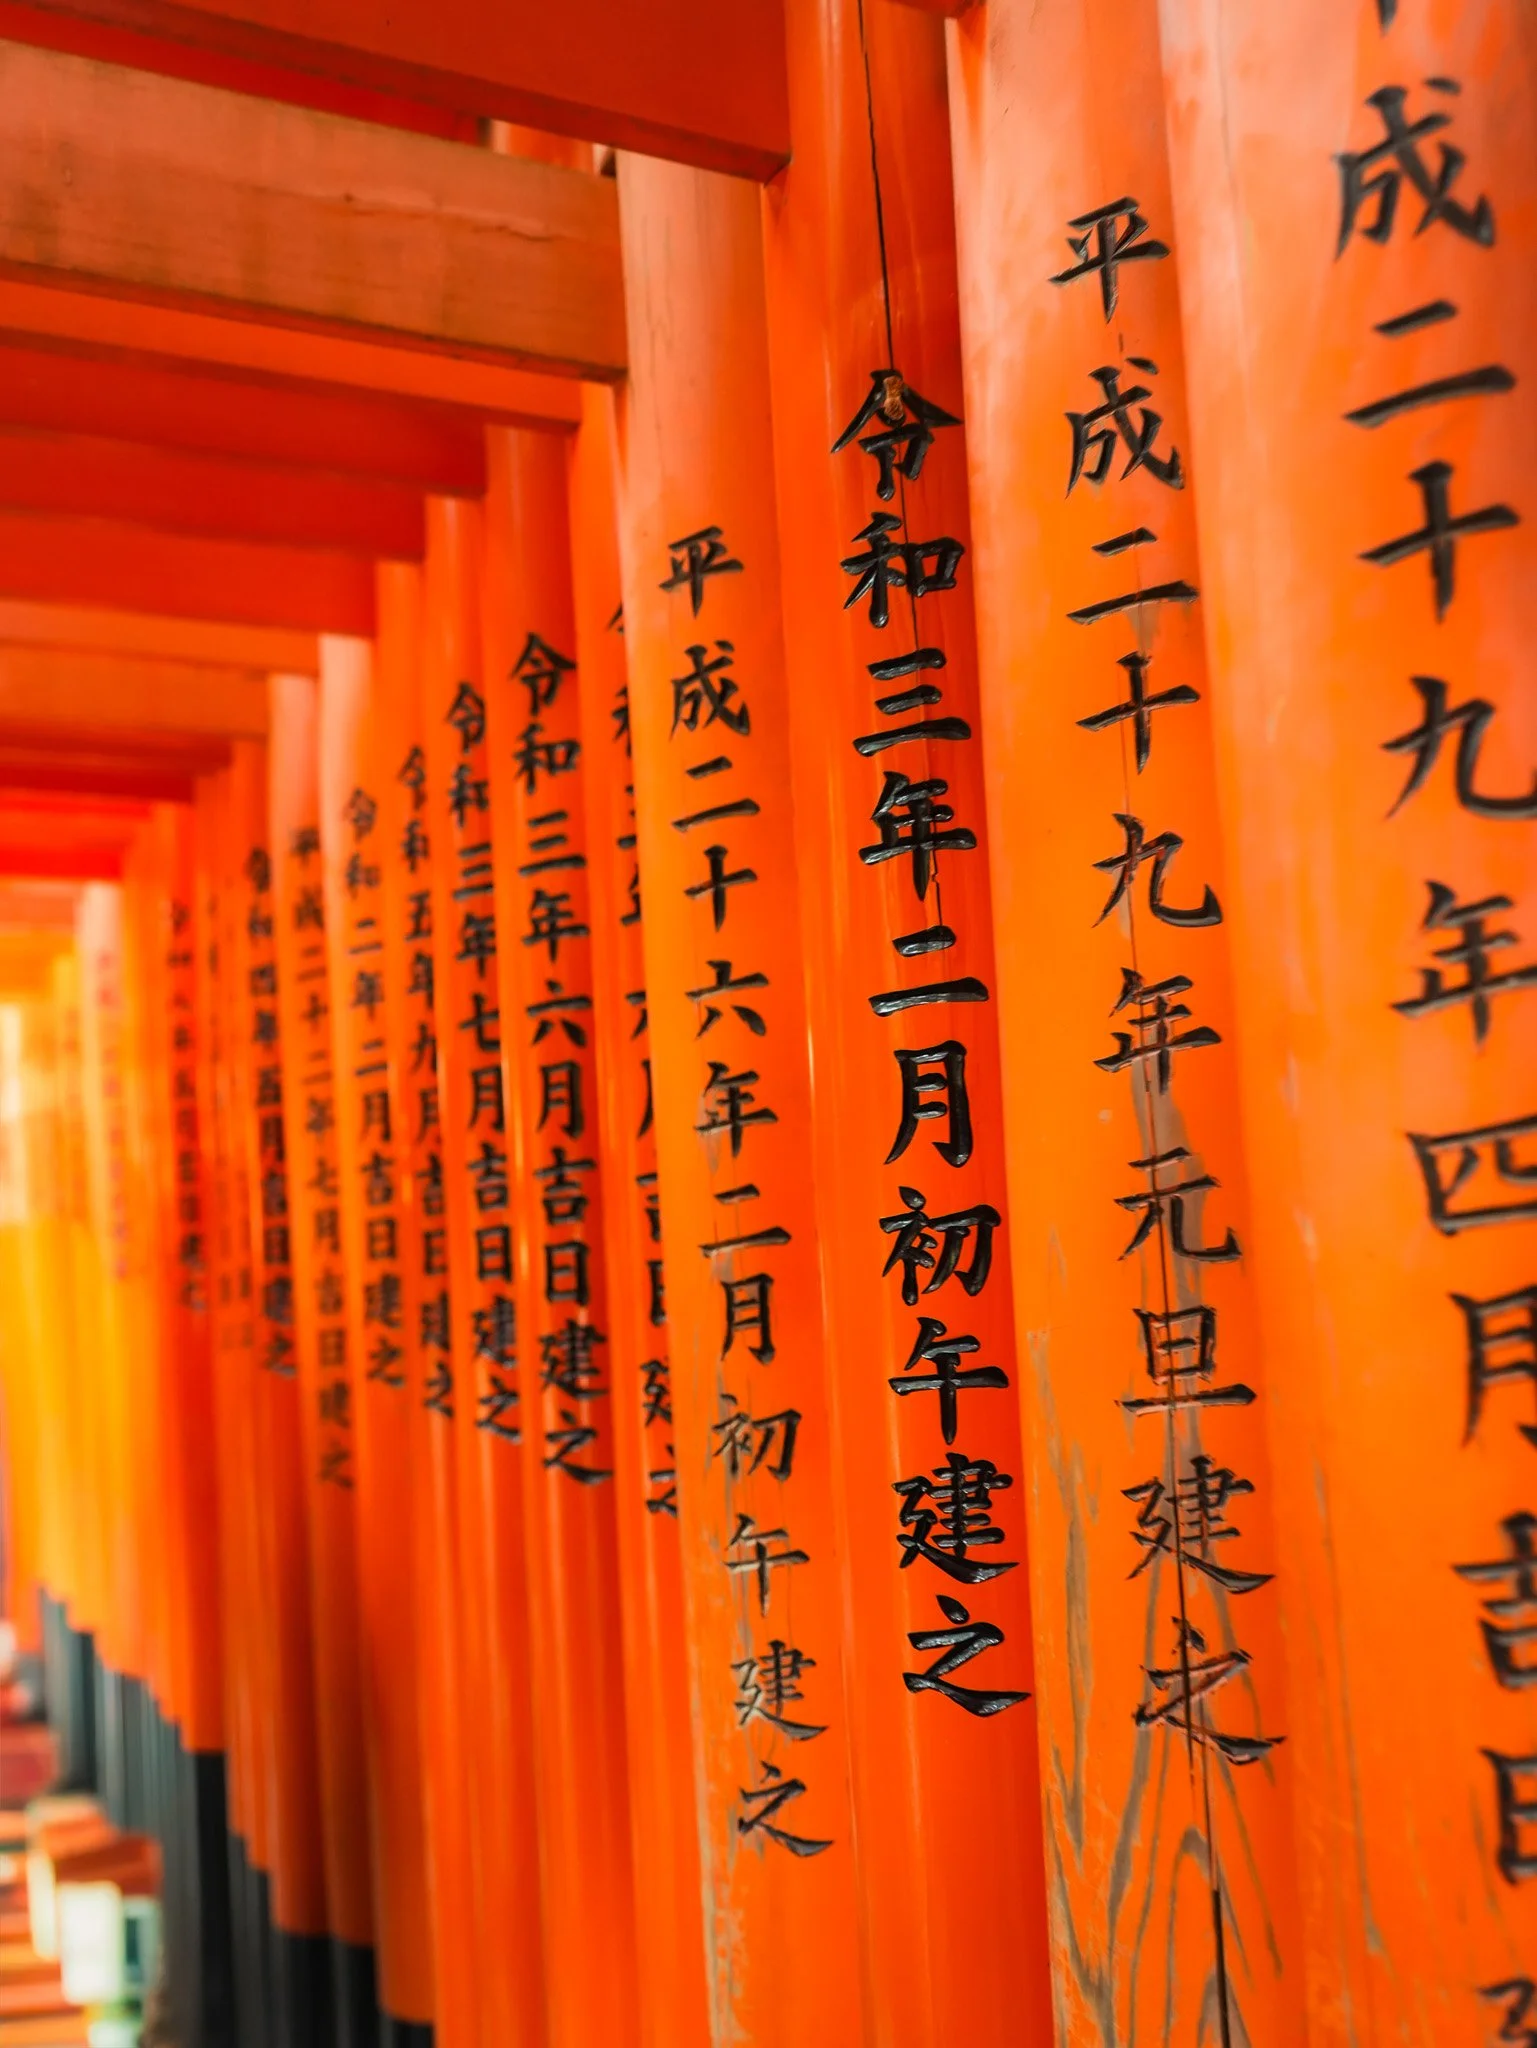 成二十九年四月吉日
平成二十九年元旦建之
令和三年二月初午建之
平成二十六年二月初午建之
令和三年六月吉日建之
令和三年七月吉日建之
令和五年九月吉日建之
令和二年二月吉日建之
平成二十二年七月吉日建之
令和四年五月吉日建之